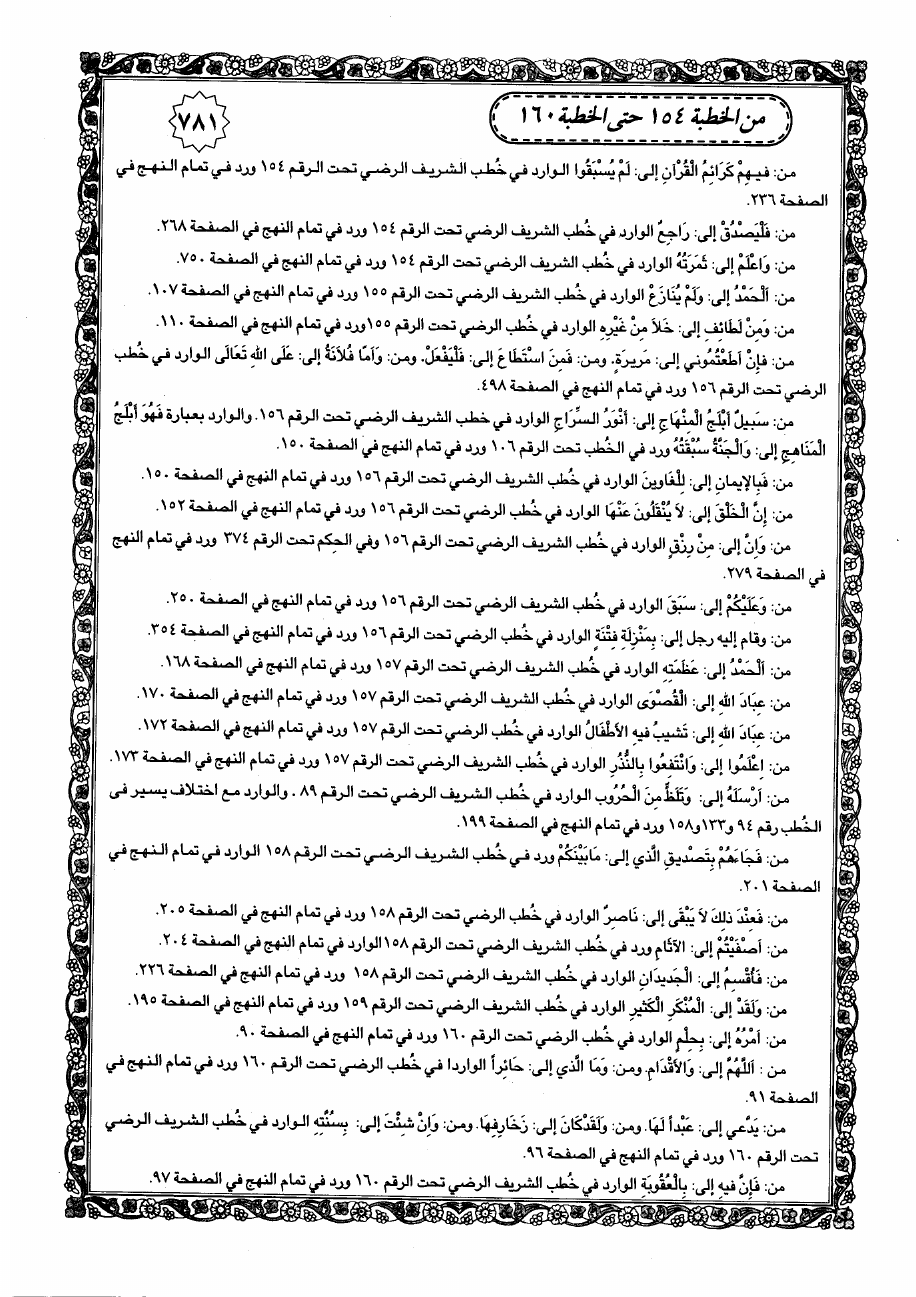 من الخطبة ١٥٤ حتى الخطبة ١٦٠
٧٨١
من: فيهِمْ كَرَائِمُ الْقُرْآنِ إلى: لَمْ يُسْبَقُوا الوارد في خُطب الشريف الرضي تحت الرقم ١٥٤ ورد في تمام النهج في
الصفحة ٢٣٦.
من: فَلْيَصْدُقْ إلى: رَاجِعٌ الوارد في خُطب الشريف الرضي تحت الرقم ١٥٤ ورد في تمام النهج في الصفحة ٢٦٨.
من: وَاعْلَمْ إلى: ثَمَرَتُهُ الوارد في خُطب الشريف الرضي تحت الرقم ١٥٤ ورد في تمام النهج في الصفحة ٧٥٠.
من: اَلْحَمْدُ إلى: وَلَمْ يُنَازَعْ الوارد في خُطب الشريف الرضي تحت الرقم ١٥٥ ورد في تمام النهج في الصفحة ١٠٧.
من: وَمِنْ لَطَائِفِ إلى: خَلاَ مِنْ غَيْرِهِ الوارد في خُطب الرضي تحت الرقم ١٥٥ورد في تمام النهج في الصفحة ١١٠.
من: فَإِنْ أَطَعْتُمُوني إلى: مَريرَةٍ. ومن: فَمَنِ اسْتَطَاعَ إلى: فَلْيَفْعَلْ. ومن: وَأَمَّا فُلاَنَةُ إلى: عَلَى اللهِ تَعَالَى الوارد في خُطب
الرضي تحت الرقم ١٥٦ ورد في تمام النهج في الصفحة ٤٩٨.
من: سَبيلٌ أَبْلَجُ الْمِنْهَاجِ إلى: أَنْوَرُ السِّرَاجِ الوارد في خطب الشريف الرضي تحت الرقم ١٥٦. والوارد بعبارة فَهُوَ أَبْلَجُ
الْمَنَاهِجِ إلى: وَالْجَنَّةُ سُبْقَتُهُ ورد في الخطب تحت الرقم ١٠٦ ورد في تمام النهج في الصفحة ١٥٠.
من: فَبِالإيمَانِ إلى: لِلْغَاوِينَ الوارد في خُطب الشريف الرضي تحت الرقم ١٥٦ ورد في تمام النهج في الصفحة ١٥٠.
من: إِنَّ الْخَلْقَ إلى: لاَ يُنْقَلُونَ عَنْهَا الوارد في خُطب الرضي تحت الرقم ١٥٦ ورد في تمام النهج في الصفحة ١٥٢.
من: وَإِنَّ إلى: مِنْ رِزْقٍ الوارد في خُطب الشريف الرضي تحت الرقم ١٥٦ وفي الحِكم تحت الرقم ٣٧٤ ورد في تمام النهج
في الصفحة ٢٧٩.
من: وَعَلَيْكُمْ إلى: سَبَقَ الوارد في خُطب الشريف الرضي تحت الرقم ١٥٦ ورد في تمام النهج في الصفحة ٢٥٠.
من: وقام إليه رجل إلى: بِمَنْزِلَةِ فِتْنَةٍ الوارد في خُطب الرضي تحت الرقم ١٥٦ ورد في تمام النهج في الصفحة ٣٥٤.
من: اَلْحَمْدُ إلى: عَظَمَتِهِ الوارد في خُطب الشريف الرضي تحت الرقم ١٥٧ ورد في تمام النهج في الصفحة ١٦٨.
من: عِبَادَ اللهِ إلى: الْقُصْوَى الوارد في خُطب الشريف الرضي تحت الرقم ١٥٧ ورد في تمام النهج في الصفحة ١٧٠.
من: عِبَادَ اللهِ إلى: تَشيبُ فيهِ الأَطْفَالُ الوارد في خُطب الرضي تحت الرقم ١٥٧ ورد في تمام النهج في الصفحة ١٧٢.
من: اِعْلَمُوا إلى: وَانْتَفِعُوا بِالنُّذُرِ الوارد في خُطب الشريف الرضي تحت الرقم ١٥٧ ورد في تمام النهج في الصفحة ١٧٣.
من: أَرْسَلَهُ إلى: وَتَلَظٍّ مِنَ الْحُرُوبِ الوارد في خُطب الشريف الرضي تحت الرقم ٨٩. والوارد مع اختلاف يسير في
الخُطب رقم ٩٤ و١٣٣و١٥٨ ورد في تمام النهج في الصفحة ١٩٩.
من: فَجَاءَهُمْ بِتَصْديقِ الَّذي إلى: مَابَيْنَكُمْ ورد في خُطب الشريف الرضي تحت الرقم ١٥٨ الوارد في تمام النهج في
الصفحة ٢٠١.
من: فَعِنْدَ ذلِكَ لاَ يَبْقَى إلى: نَاصِرٌ الوارد في خُطب الرضي تحت الرقم ١٥٨ ورد في تمام النهج في الصفحة ٢٠٥.
من: أَصْفَيْتُمْ إلى: الآثَامِ ورد في خُطب الشريف الرضي تحت الرقم ١٥٨الوارد في تمام النهج في الصفحة ٢٠٤.
من: فَأُقْسِمُ إلى: الْجَديدَانِ الوارد في خُطب الشريف الرضي تحت الرقم ١٥٨ ورد في تمام النهج في الصفحة ٢٢٦.
من: وَلَقَدْ إلى: الْمُنْكَرِ الْكَثيرِ الوارد في خُطب الشريف الرضي تحت الرقم ١٥٩ ورد في تمام النهج في الصفحة ١٩٥.
من: أَمْرُهُ إلى: بِحِلْمٍ الوارد في خُطب الرضي تحت الرقم ١٦٠ ورد في تمام النهج في الصفحة ٩٠.
من : اَللَّهُمَّ إلى: وَالأَقْدَامِ. ومن: وَمَا الَّذي إلى: حَائِراً الواردا في خُطب الرضي تحت الرقم ١٦٠ ورد في تمام النهج في
الصفحة ٩١.
من: يَدَّعي إلى: عَبْداً لَهَا. ومن: وَلَقَدْكَانَ إلى: زَخَارِفِهَا. ومن: وَإِنْ شِئْتَ إلى: بِسُنَّتِهِ الوارد في خُطب الشريف الرضي
تحت الرقم ١٦٠ ورد في تمام النهج في الصفحة ٩٦.
من: فَإِنَّ فيهِ إلى: بِالْعُقُوبَةِ الوارد في خُطب الشريف الرضي تحت الرقم ١٦٠ ورد في تمام النهج في الصفحة ٩٧.